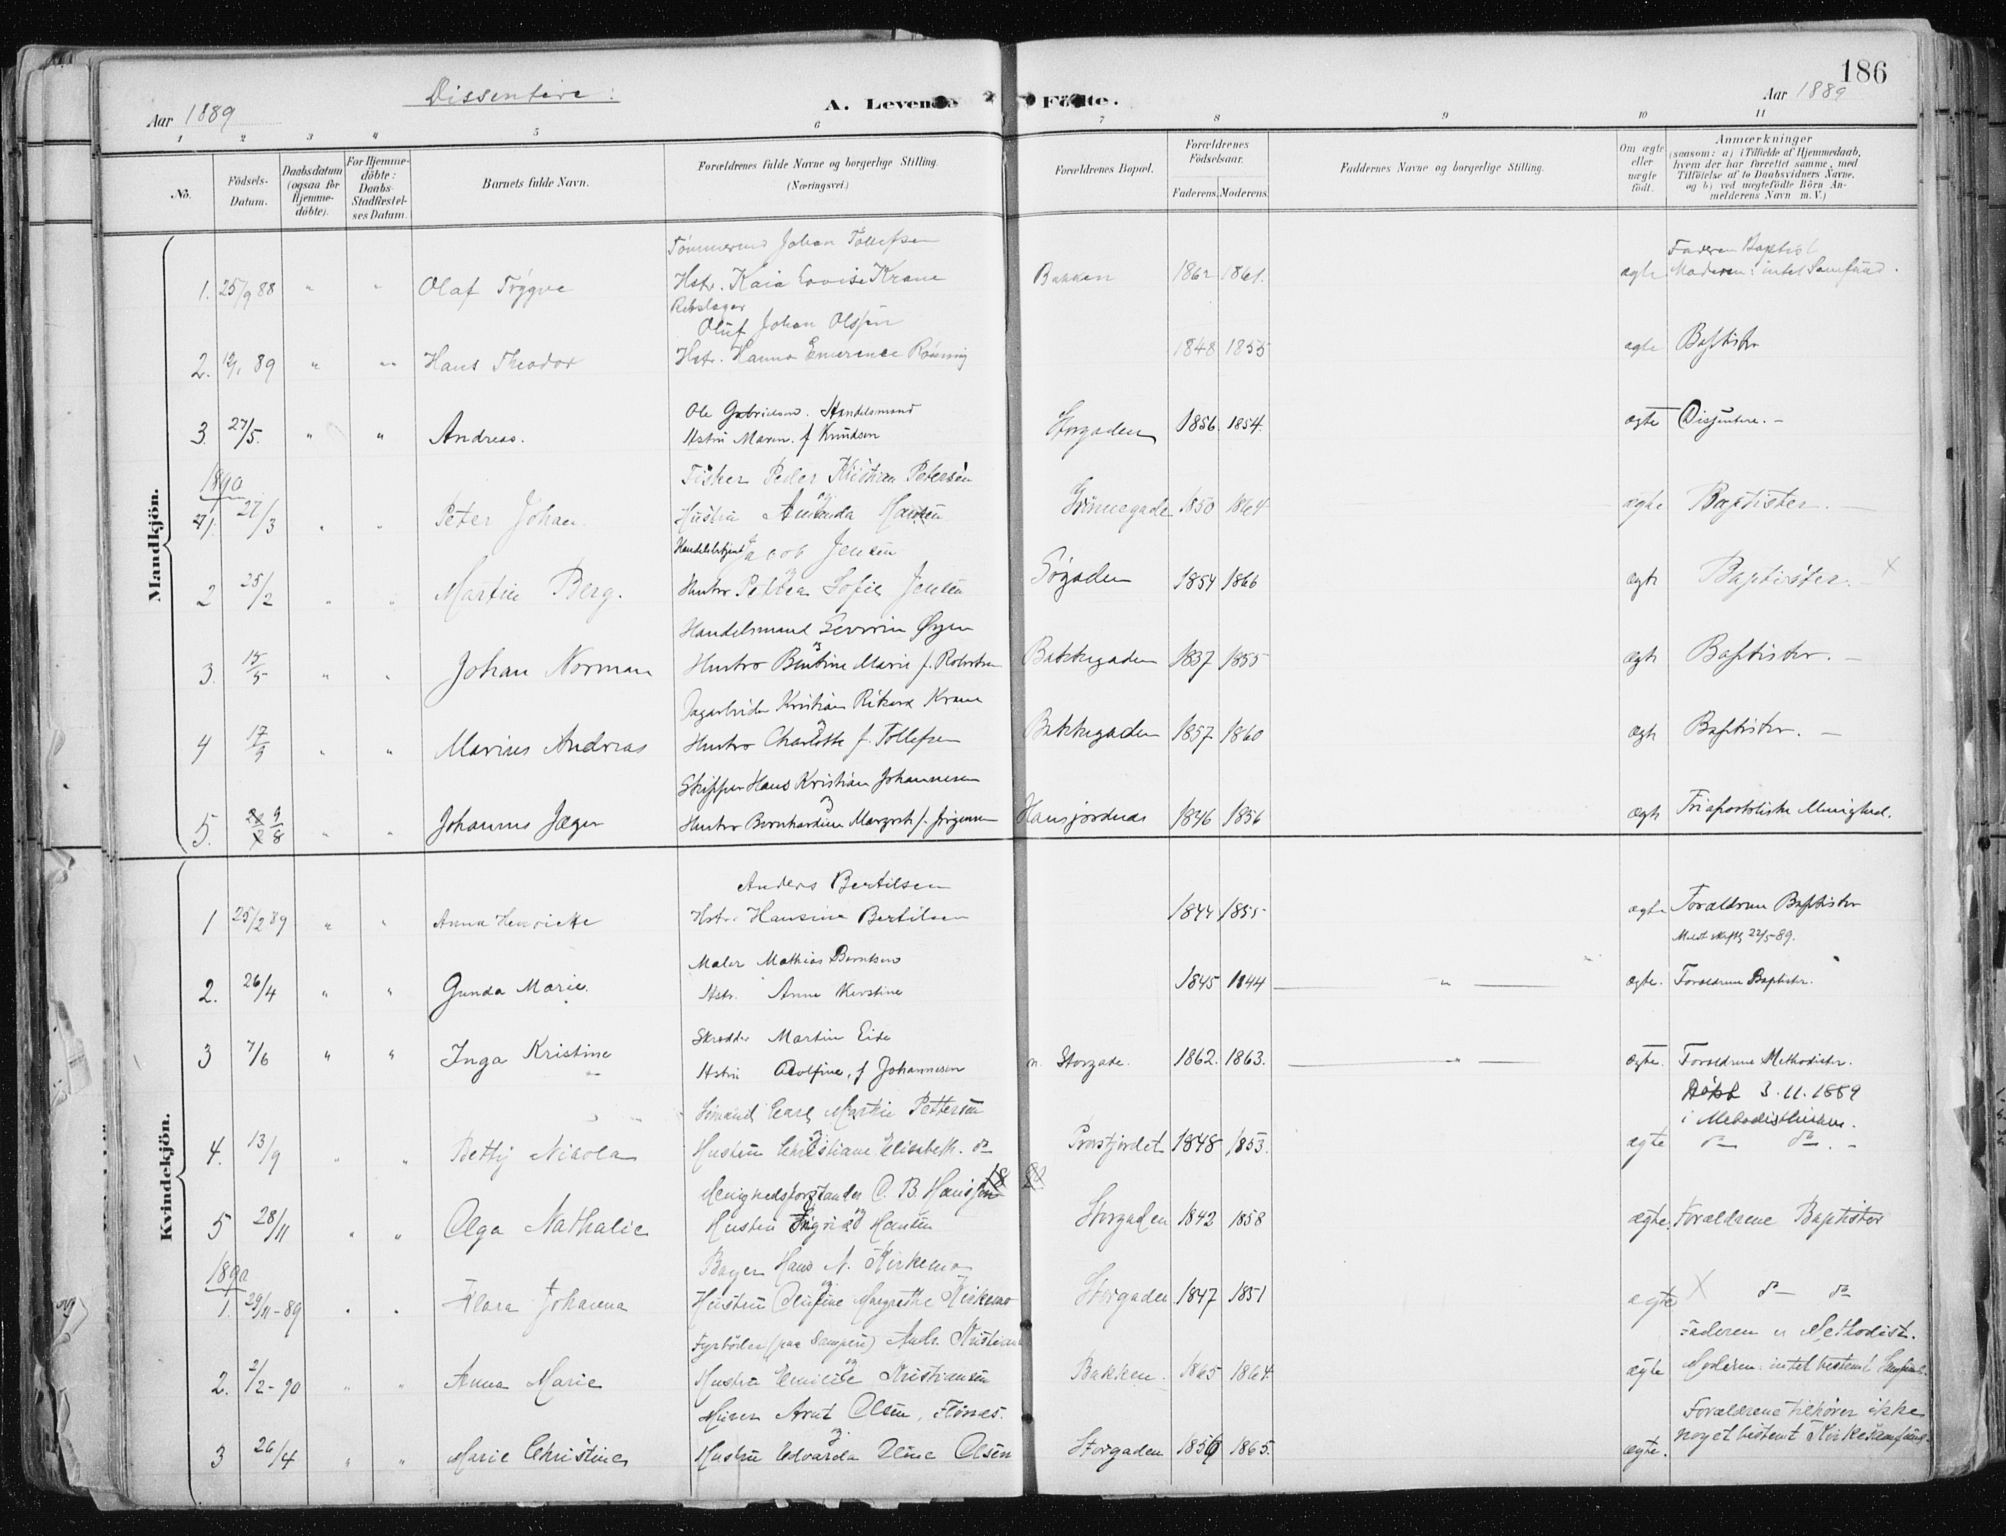 186
Dissentere:
Aar 1889
A. Levende Födte.
Aar 1889
1 2 3 4 5 6 7 8 9 10 11
No. Födsels-Datum. Daabsdatum (ogsaa for Hjemme-döbte). For Hjemme-döbte: Daabs-Stadfæstel-ses Datum. Barnets fulde Navn. Forældrenes fulde Navne og borgerlige Stilling. (Næringsvei) Forældrenes Bopæl. Forældrenes Födselsaar. Faderens. Moderens. Faddernes Navne og borgerlige Stilling. Om ægte eller uægte födt. Anmærkninger (saasom: a) i Tilfælde af Hjemmedaab, hvem der har forrettet samme, med Tilföielse af to Daabsvidners Navne, og b) ved uægtefödte Börn An-melderens Navn m. V.)
Mandkjön.
Tømmermd Johan Tollefsen Faderen Baptist
1. 25/9 88 " " Olaf Tryggve Hstr. Kaia Lovise Krane Bakken 1862 1861. ægte Moderen: intet Samfund.
Rebslager
Oluf Johan Olssen
2. 89 " " Hans Theodor Hstr. Hanna Emerence Rønning 1848 1855 ægte Baptister
Ole Gabrielsen. Handelsmand
3. 27/5. " " Andreas. Hstru Maren. f Knudsen Storgaden 1856. 1854. ægte Dissentere. -
1890 Fisker Peder Kristian Petersen
1. 27/3 " " Peter Johan Hustru Amanda Hansen Grønnegade 1850 1864 ægte Baptister. -
Handelsbetjent Jacob Jensen
2 25/2 " " Martin Berg. Hustro Petrea Sofie Jensen Søgaden 1854 1866 ægte Baptister. - x
Handelsmand Severin Øyen
3. 15/5 " " Johan Norman Hustro Bentine Marie f. Robertsen Bakkegaden 1837 1855 ægte Baptister. -
Dagarbeider Kristian Rikard Krane
4 17/9 " " Marius Andreas Hustro Charlotte f. Tollefsen Bakkegaden 1857 1860 ægte Baptister. -
Skipper Hans Kristian Johannesen
5. 9/8 " " Johannes Jæger Hustro Bernhardine Margreth f. Jørgensen Hansjordnes 1846 1856 ægte Friapostoliske Menighed.
Kvindekjön.
Anders Bertilsen
1 25/2 89 " " Anna Henriette Hstr. Hansine Bertilsen 1844 1855 ægte Forældrene Baptister
22/5-89.
Maler Mathias Berntsen
2. 26/4 " " Gunda Marie. Hstr. Anne Kirstine 1845 1844 " ægte. Forældrene Baptister.
Skrædder Martin Eide
3 7/6 " " Inga Kristine Hstru Adolfine, f Johannesen n. Storgade. 1862. 1863. " ægte. Forældrene Methodister.
Døbt 3.11.1889
i Methodistkirken.
Carl Martin Pettersen
4. 13/9 " " Betty Nikola Hustru Christiane Elisabeth. do Prestjordet 1848 1853. ægte do do. -
Menighedsforstander O. B. Hansson
5 28/11 " " Olga Nathalie Hustru Ingrid Hansen Storgaden 1842 1858 ægte. Forældrene Baptister
1890 Bager Hans N. Kirkemo
1. 29/11-89 " " Klara Johanna Hustru Olufine Margrethe Kirkemo Storgaden 1847 1851 ægte X do do
Fyrbøder (paa Dampsk) Andr. Kristiansen Faderen er Methodist.
2. 2/2-90 " " Anna Marie Hustru Emilie Kristiansen Bakken. 1865 1864. ægte Moderen: intet bestemt Samfund.
Murer Arnt Olsen, Forældrene tilhører ikke
3 26/4 " " Marie Christine Hustru Edvarda Oline Olsen Storgaden 1856 1865. ægte. noget bestemt Kirkesamfund.